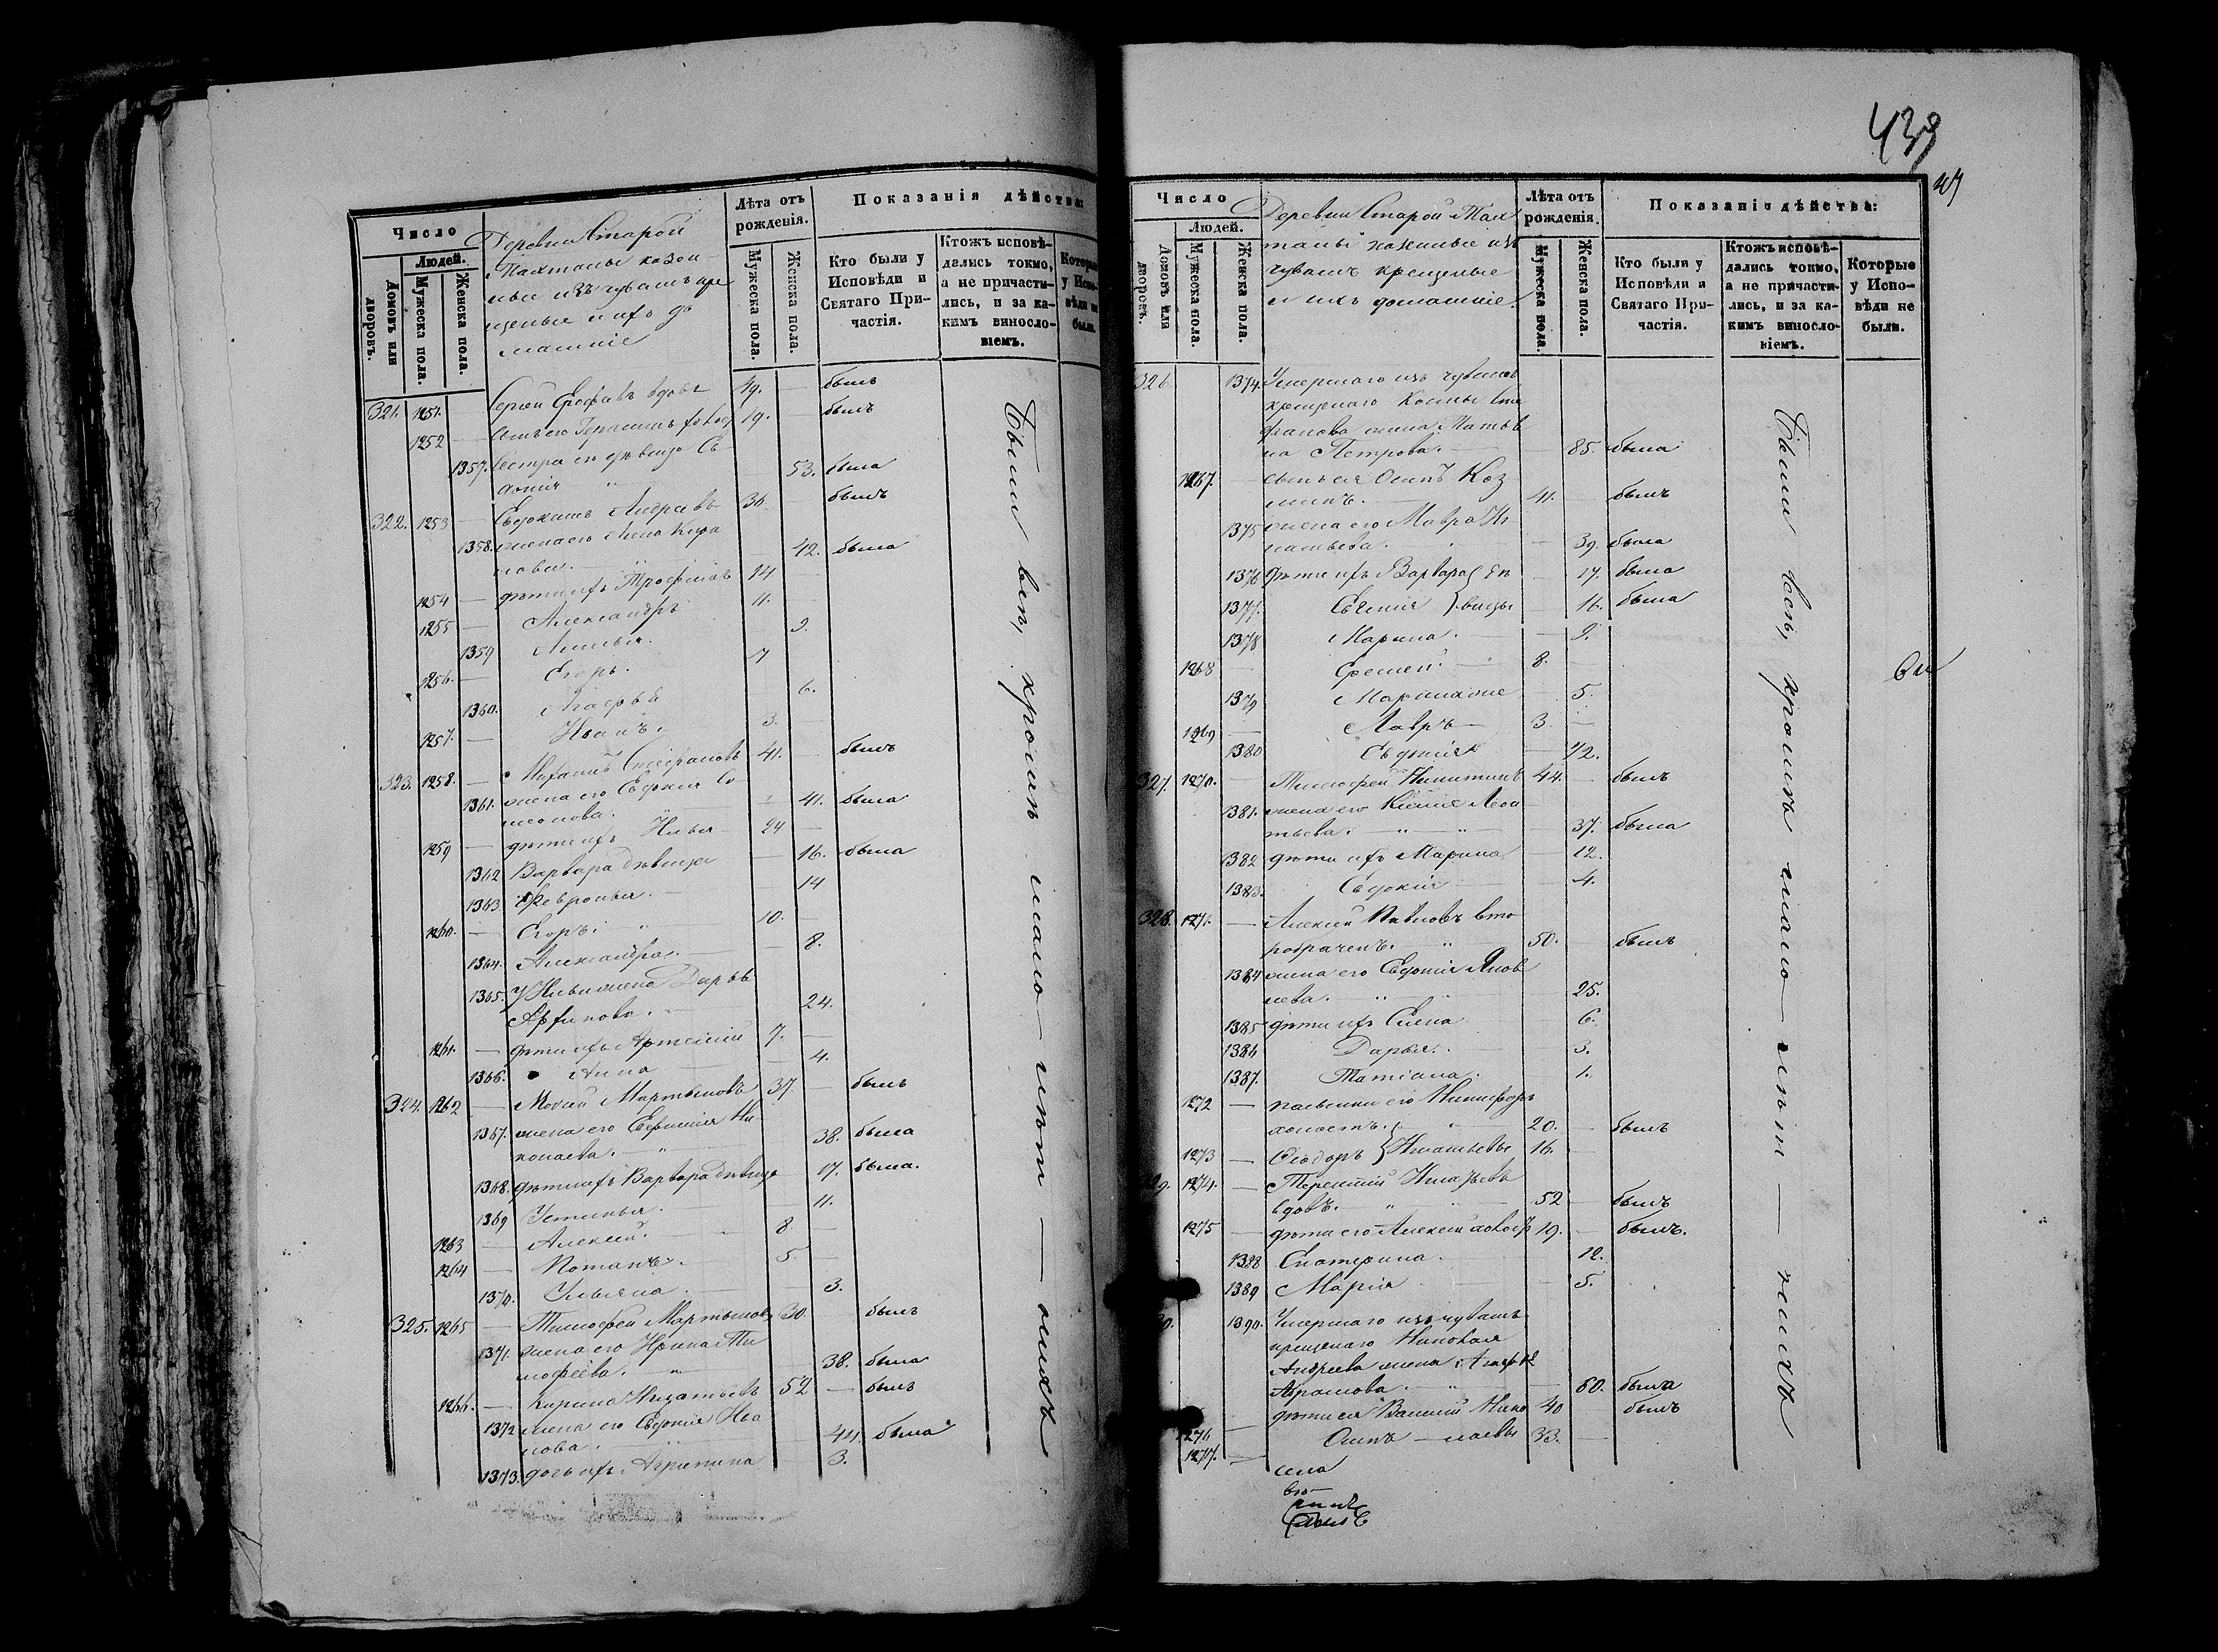 Число
Людей.
Домовъ или дворовъ.
Мужеска пола.
Женска пола.
Деревни Старой
казен-
ные изъ чувашъ кре
щеные и ихъ до
машніе
Лѣта отъ рожденія.
Мужеска пола.
Женска пола.
Показанія дѣйства:
Кто были у Исповѣди и Святаго При-частія.
Ктожъ исповѣ-дались токмо, а не причасти-лись, и за ка-кимъ винословіемъ.
Которые у Испо-вѣди не были.
321. 1251. Сергей вдовъ 49. былъ
1252 сынъ его Герасимъ 19. былъ
1357. Сестра его дѣвица Ев-
докія 53. была
322. 1253 Евдокимъ Андреевъ 36 былъ
1358. жена его
42. была
1254 дѣти ихъ Трофимъ 14
1255 Александръ 11.
1359 9.
1256. Егоръ. 7
1360. Агафья 6.
1257. Иванъ. 3.
323. 1258. Стефановъ 41. былъ
1361. жена его Евдокия Си
меонова. 41. была
1259 дѣти ихъ Илья 24
1362 Варвара дѣвица 16. была
1363 Февронья 14
1260. Егоръ. 10.
1364. Александра. 8.
1365. У Ильи жена Дарья
24.
1261. дѣти ихъ Артемий 7.
1366. Анна 4.
324. 1262 Мокей Мартыновъ 37. былъ
1367. жена его Ни
колаева. 38. была
1368. дѣти ихъ Варвара дѣвица 17. была.
1369 Устинья 11.
1263 Алексей. 8
1264 Потапъ. 5.
1370. Ульяна 3.
325. 1265 Тимофей Мартыновъ 30 былъ
1371. жена его Ирина Ти
мофеева. 38. была
1266. Игнатьевъ 52 былъ
1372 жена его Евдокия Ива
нова. 44. была
1373. дочь ихъ Агрипина 3.
Были всѣ, кромѣ мало-лѣтнихъ
439
Число
Людей.
Домовъ или дворовъ.
Мужеска пола.
Женска пола.
Деревни Старой
казенные изъ
чувашъ крещеные
и ихъ домашніе.
Лѣта отъ рожденія.
Мужеска пола.
Женска пола.
Показанія дѣйства:
Кто были у Исповѣди и Святаго При-частія.
Ктожъ исповѣ-дались токмо, а не причасти-лись, и за ка-кимъ винословіемъ.
Которые у Испо-вѣди не были.
326. 1374. Умершаго изъ чувашъ
крещенаго Козмы Сте
фанова жена
Петрова. 85. была
1267. сынъ ея Осипъ Коз
минъ. 41. былъ
1375 жена его Мавра Иг
натьева. 39. была
1376 дѣти ихъ Варвара дѣ 17. была
1377. Евгения вицы 16. была
1378 Марина. 9.
1268 8.
1379 5.
1269 Лавръ 3.
1380 Евдокия 1/2.
327. 1270. Тимофей Никитинъ 44. былъ
1381. жена его Ксения Леон
тьева. 37. была
1382 дѣти ихъ Марина 12.
1383. Евдокия 4.
328. 1271. Алексей Павловъ вто
робраченъ. 50. былъ
1384 жена его Евдокия Яков
лева. 25.
1385 дѣти ихъ Елена 6.
1386 Дарья. 3.
1387. Татиана. 1.
1272 его Никифоръ
холостъ. 20. былъ
1273 Феодоръ Игнатьевы 16.
1274. Терентий Игнатьевъ
вдовъ. 52 былъ
1275 дѣти его Алексей холостъ 19. былъ.
1388 Екатерина. 12.
1389 Мария 5.
1390. Умершаго изъ чувашъ
крещенаго Николая
Андреева жена Агафья
Абрамова. 60. была
1276 дѣти ея Василий Нико 40 былъ
1277. Осипъ лаевы 33.
Были всѣ, кромѣ мало-лѣт-нихъ
села